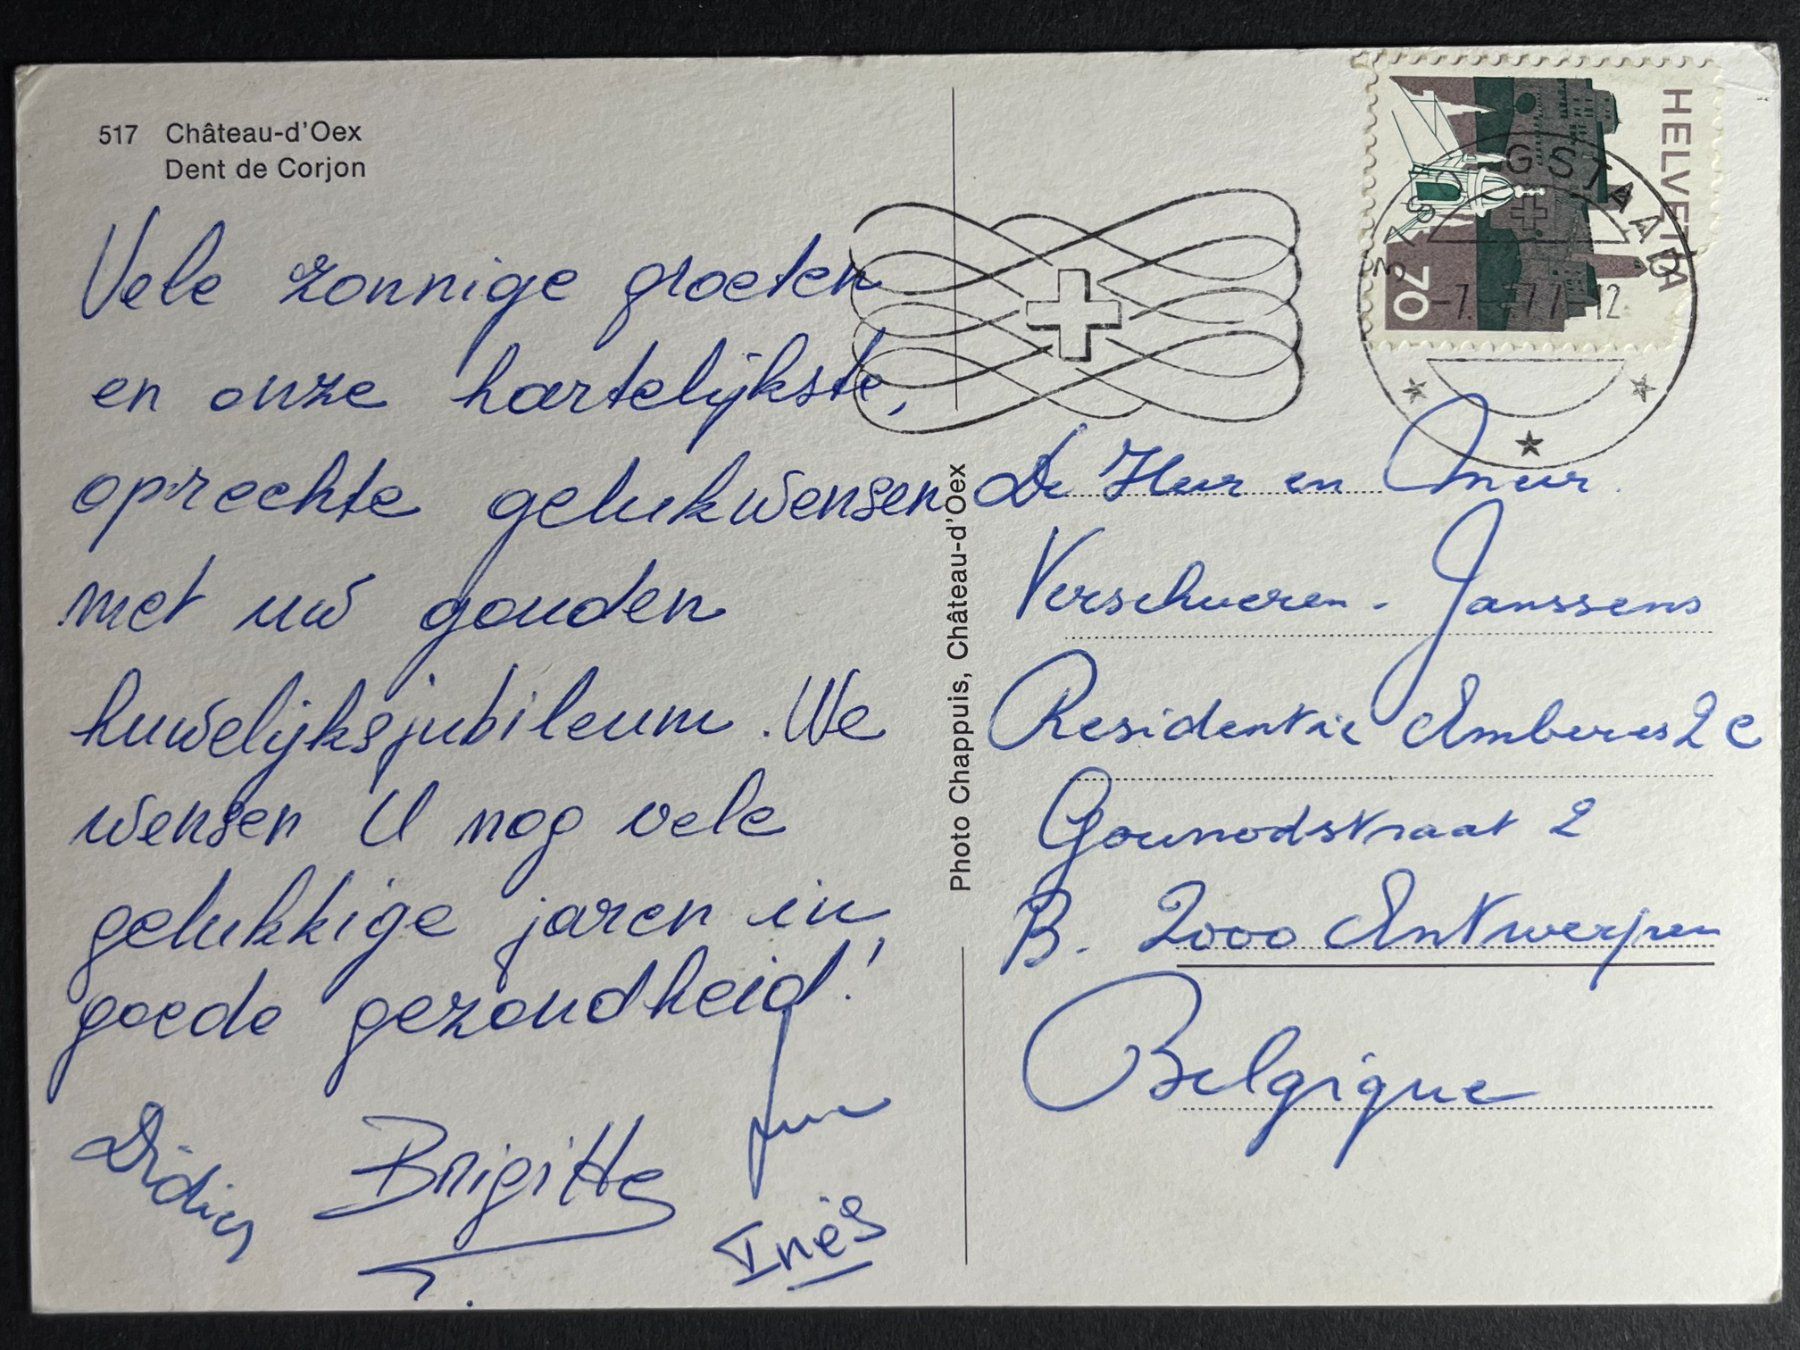 517 Château-d'Oex
Dent de Corjon
Vele zonnige groeten
en onze hartelijkste,
oprechte gelukwensen
met uw gouden
huwelijksjubileum. We
wensen U nog vele
gelukkige jaren in
goede gezondheid!
Didier Brigitte
Inès
Photo Chappuis, Château-d'Oex
HELVETIA
70
GSTAAD
De Heer en Mevr.
Verschueren - Janssens
Residentie Amberes 2 C
Gounodstraat 2
B. 2000 Antwerpen
Belgique